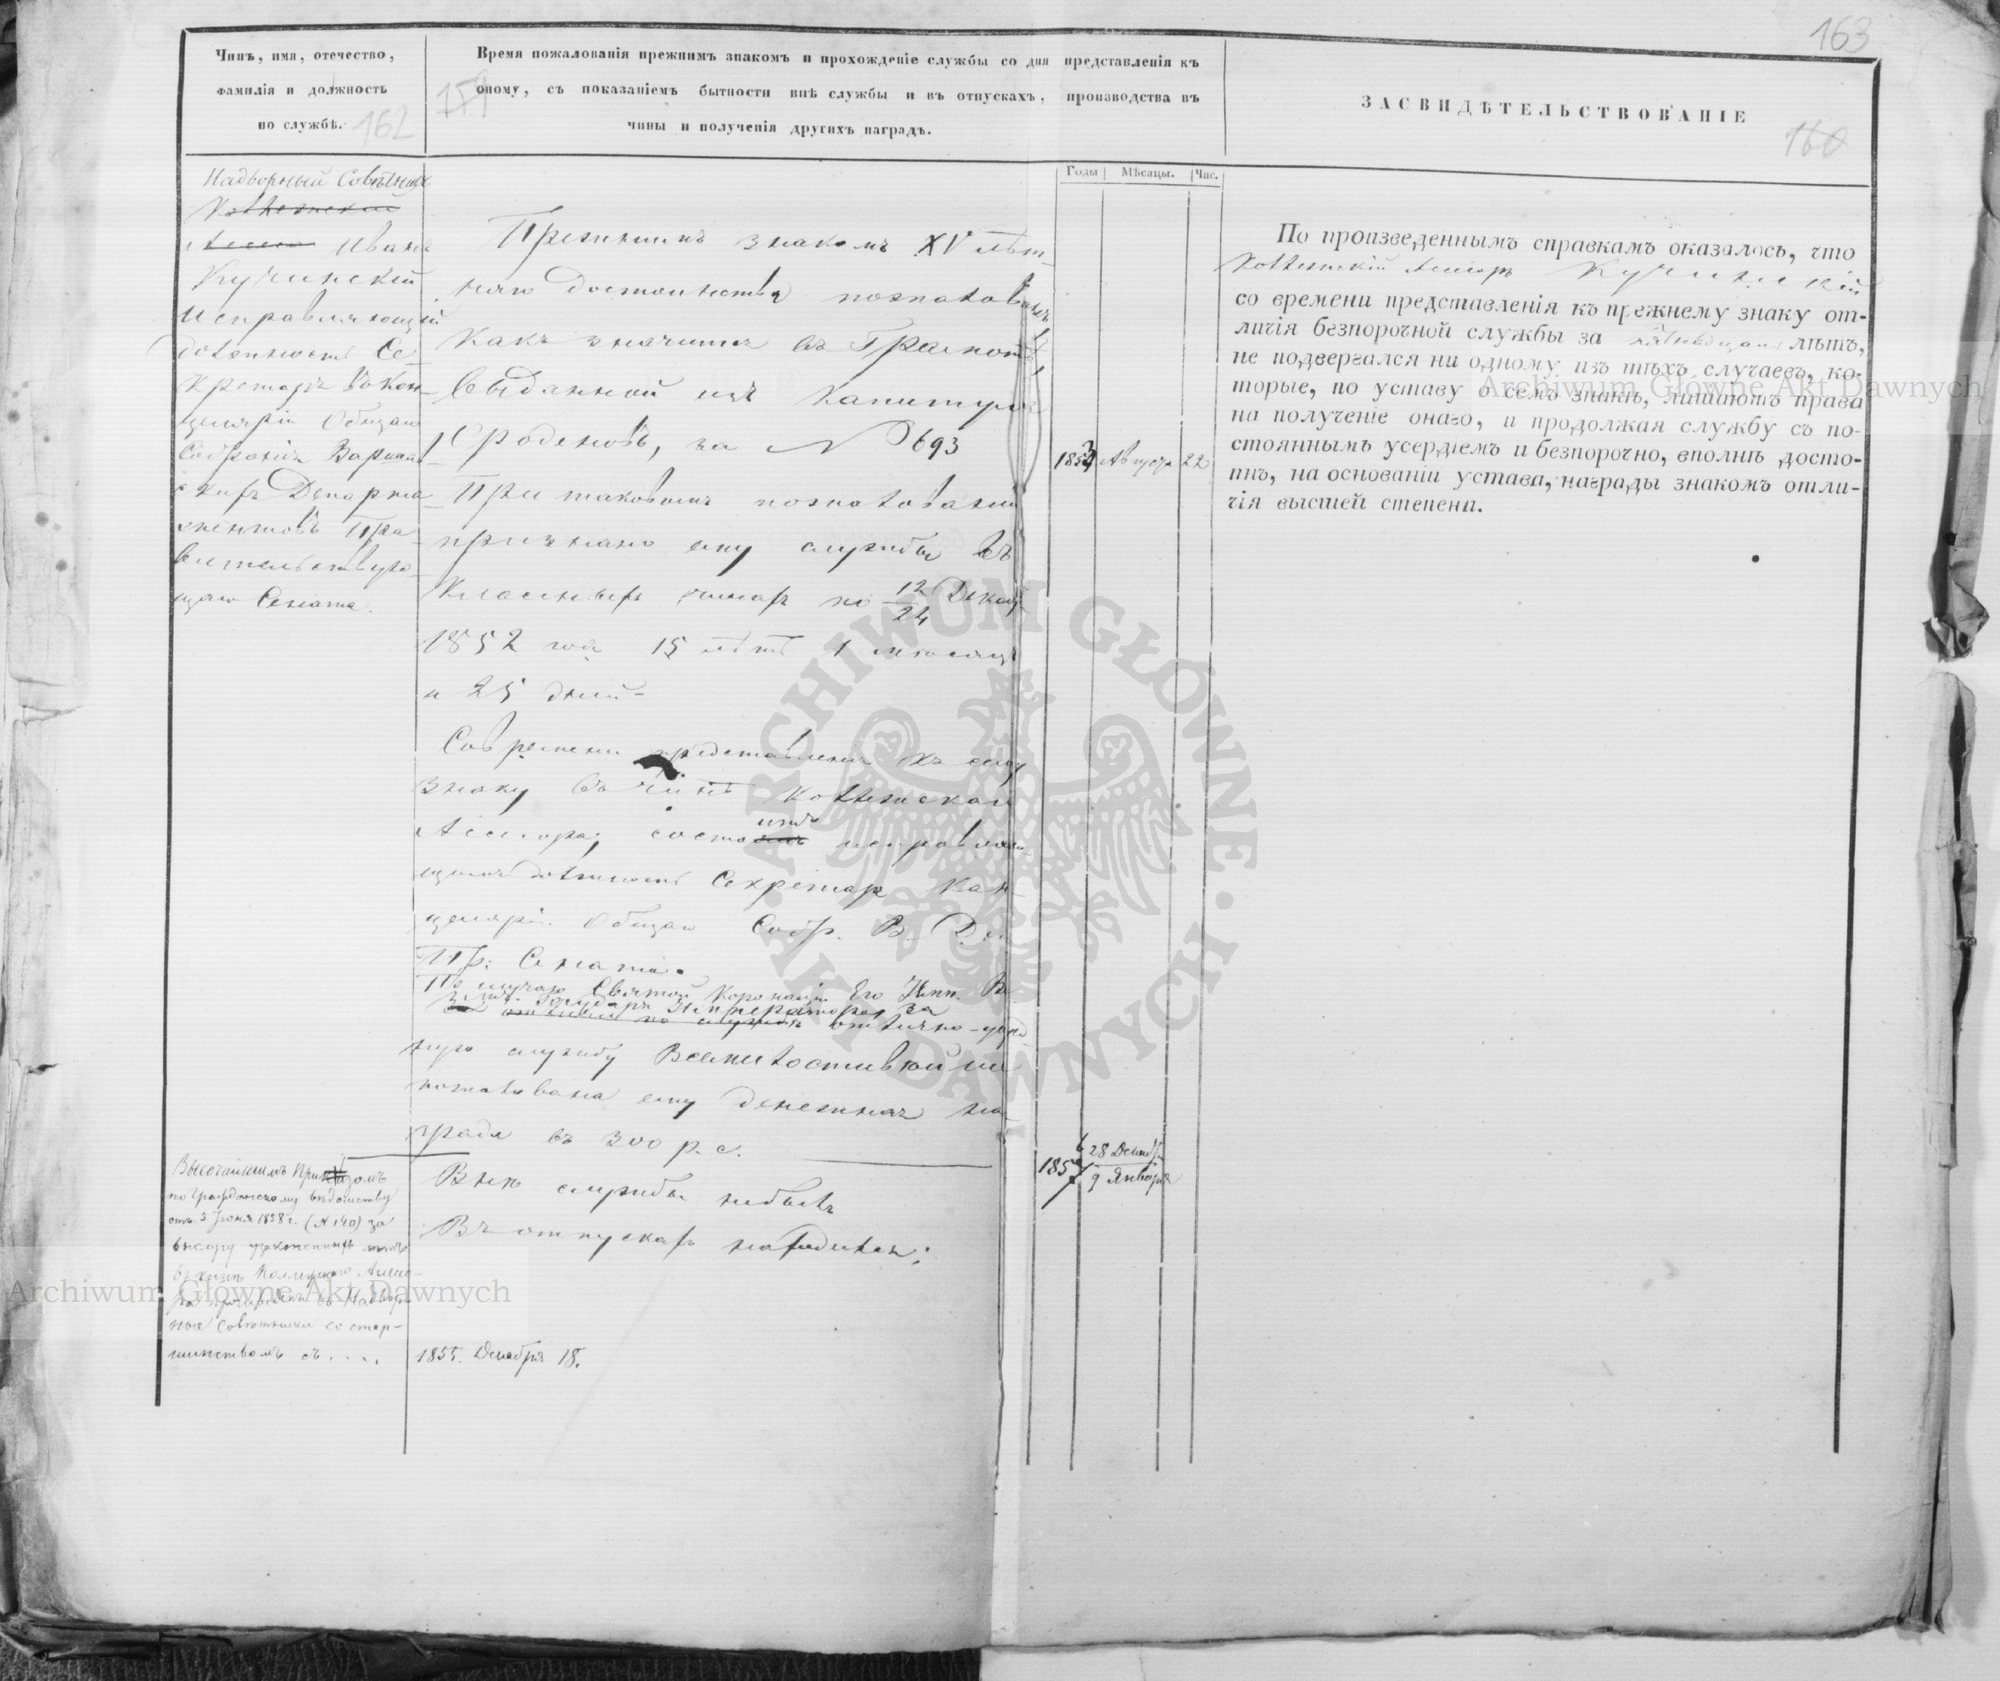 163
Чинъ, имя, отечество,
фамилія и должность
по службѣ.
162
Время пожалованія прежнимъ знакомъ и прохожденіе службы со дня представленія къ
оному, съ показаніемъ бытности внѣ службы и въ отпускахъ, производства въ
чины и полученія другихъ наградъ.
159
ЗАСВИДѢТЕЛЬСТВОВАНІЕ
160
Годы
Мѣсяцы.
Чис.
Надворный Совѣтникъ
Коллежскій
Иванъ
Кучинскій
Исправляющій
должность Се-
кретаря въ Кан-
целяріи Общаго
Собранія Варшав-
скихъ Департа-
ментовъ Пра-
вительствую-
щаго Сената.
Высочайшимъ Приказомъ
по Гражданскому вѣдомству
отъ 3 Іюня 1858 г. (№ 140) за
выслугу узаконенныхъ лѣтъ
въ чинѣ Коллежскаго Ассес-
сора произведенъ въ Надвор-
ные Совѣтники со стар-
шинствомъ съ . . . .
Прежнимъ знакомъ XV лѣт-
няго достоинства пожалованъ
какъ значится въ Грамотѣ
выданной изъ Капитула
Орденовъ, за № 693
При таковомъ пожалованіи
признано ему службы въ
Классныхъ чинахъ по 12/24 Декаб.
1852 года 15 лѣтъ 1 мѣсяцъ
и 25 дней
Со времени представленія къ сему
знаку въ чинѣ Коллежскаго
Ассесора, состоитъ исправляю-
щимъ должность Секретаря Кан-
целяріи Общаго Собр. В. Д.
Пр: Сената.
По случаю Святой Коронаціи Его Имп. В.
Государя Императора за
отлично-усерд
ную службу Всемилостивѣйше
пожалована ему денежная на-
града въ 300 р. с.
Внѣ службы небылъ
Въ отпускахъ находился:
1855. Декабря 18.
1853 Августа 22
1856/7 28 Декаб. 9 Января
По произведеннымъ справкамъ оказалось, что
Коллежскій Ассесоръ Кучинскій
со времени представленія къ прежнему знаку от-
личія безпорочной службы за пятнадцать лѣтъ,
не подвергался ни одному изъ тѣхъ случаевъ, ко-
торые, по уставу о семъ знакѣ, лишаютъ права
на полученіе онаго, и продолжая службу съ по-
стояннымъ усердіемъ и безпорочно, вполнѣ досто-
инъ, на основаніи устава, награды знакомъ отли-
чія высшей степени.
Archiwum Główne Akt Dawnych
Archiwum Główne Akt Dawnych
ARCHIWUM GŁÓWNE · AKT DAWNYCH ·